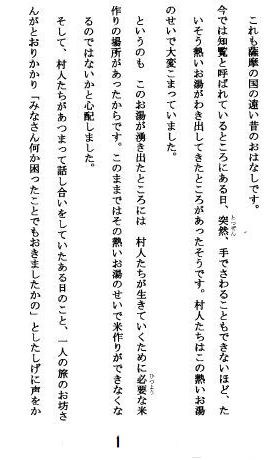 これも薩摩の国の遠い昔のおはなしです。
今では知覧と呼ばれているところにある日、突然、手でさわることもできないほど、た
とつぜん
いそう熱いお湯がわき出してきたところがあったそうです。村人たちはこの熱いお湯
のせいで大変こまっていました。
というのも、このお湯が湧き出たところには、村人たちが生きていくために必要な米
ひつよう
作りの場所があったからです。このままではその熱いお湯のせいで米作りができなくな
るのではないかと心配しました。
そして、村人たちがあつまって話し合いをしていたある日のこと、一人の旅のお坊さ
んがとおりかかり「みなさん何か困ったことでもおきましたかの」としたしげに声をか
1